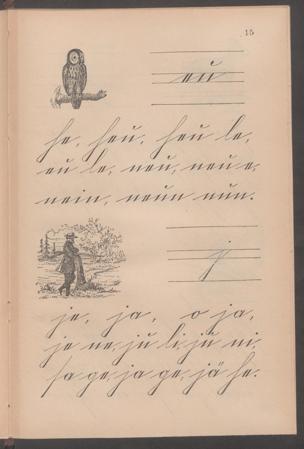 15
eu
he, heu, heu le,
eu le, neu, neu e,
nein, neun nun.
j
je, ja, o ja,
je ne, ju li, ju ni,
sa ge, ja ge, jä he.